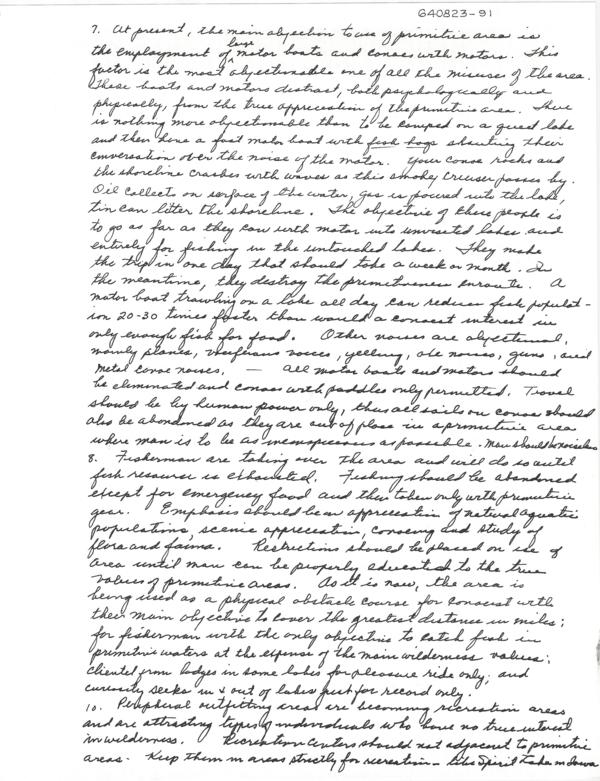 640823-91
7. At present, the main objection to use of primitive area is
the employment of large motor boats and canoes with motors. This
factor is the most objectionable one of all the misuse of the area.
These boats and motors distract, both psychologically and
physically, from the true appreciation of the primitive area. There
is nothing more objectionable than to be camped on a quiet lake
and then have a fast motor boat with fish hogs shouting their
conversation over the noise of the motor. Your canoe rocks and
the shoreline crashes with waves as this smokey cruiser passes by.
Oil collects on surface of the water, gas is poured into the lake,
tin cans litter the shoreline. The objective of these people is
to go as far as they can with motor into unvisited lakes and
entirely for fishing in the untouched lakes. They make
the trip in one day that should take a week or month. In
the meantime, they destroy the primitiveness enroute. A
motor boat trawling on a lake all day can reduce fish populat-
ion 20-30 times faster than would a canoeist interest in
only enough fish for food. Other noises are objectional,
mainly planes, vociferous voices, yelling, axe noises, guns, and
metal canoe noises. — All motor boats and motors should
be eliminated and canoes with paddles only permitted. Travel
should be by human power only, thus all sails on canoe should
also be abandoned as they are out of place in a primitive area
where man is to be as inconspicuous as possible. Man should be noiseless
8. Fisherman are taking over the area and will do so until
fish resource is exhausted. Fishing should be abandoned
except for emergency food and then taken only with primitive
gear. Emphasis should be on appreciation of natural aquatic
populations, scenic appreciation, canoeing and study of
flora and fauna. Restrictions should be placed on use of
area until man can be properly educated to the true
values of primitive areas. As it is now, the area is
being used as a physical obstacle course for canoeist with
their main objective to cover the greatest distance in miles;
for fisherman with the only objective to catch fish in
primitive waters at the expense of the main wilderness values;
clientel from lodges in some lakes for pleasure ride only; and
curiosity seeks in & out of lakes just for record only.
10. Peripheral outfitting areas are becoming recreation areas
and are attracting types of individuals who have no true interest
in wilderness. Recreation centers should not adjacent to primitive
areas. Keep them in areas strictly for recreation - like Spirit Lake in Iowa